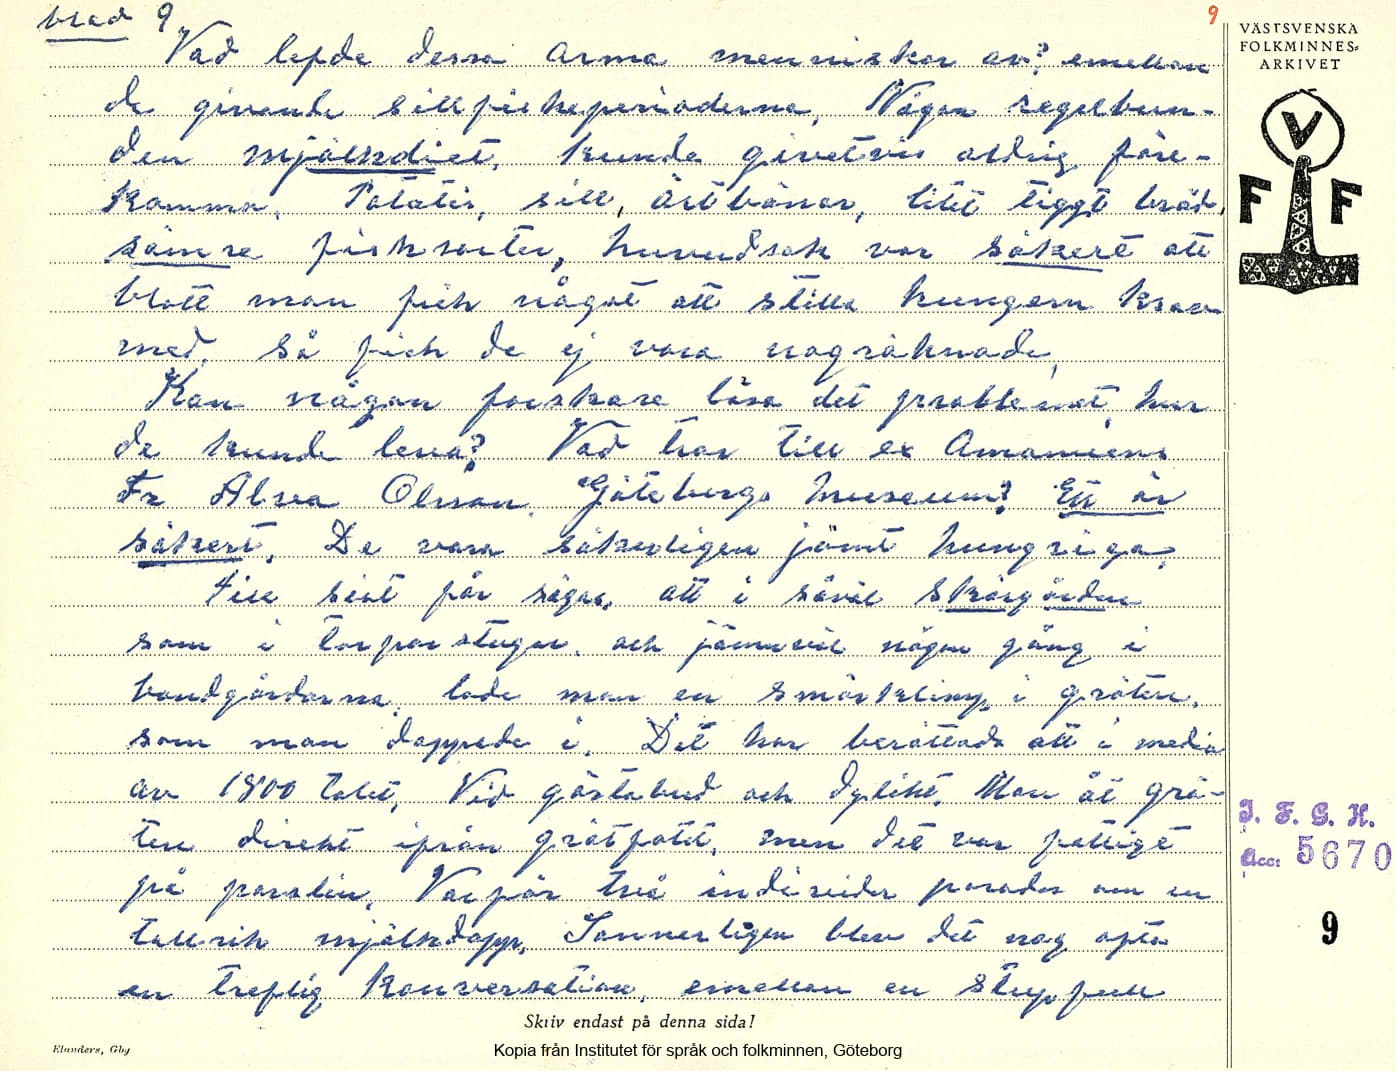 blad 9
9
VÄSTSVENSKA
FOLKMINNES-
ARKIVET
V
F F
Vad lefde dessa arma menniskor av? emellan
de givande sillfiskeperioderna. Någon regelbun-
den mjölkdiet, kunde givetvis aldrig före-
komma. Potatis, sill, ärtbönor, litet tiggt bröd,
sämre fisksorter, huvudsak var säkert att
blott man fick något att stilla hungern krav
med. Så fick de ej vara nogräknade.
Kan någon forskare lösa det problemet, hur
de kunde leva? Vad tror till ex Amanuens
Fr Alva Olsson. Göteborgs Museum? Ett är
säkert. De vara säkerligen jämt hungriga.
Till sist får sägas, att i såväl skärgården
som i torparstugor. och jämväl någon gång i
bondgårdarna. lade man en smörklimp i gröten.
som man doppade i. Det har berättads att i medio
av 1800 talet. Vid gästabud och dylikt. Man åt grö-
ten direkt ifrån grötfatet, men det var fattigt
på porslin. Varför två individer parades om en
tallrik mjölkdopp. Sannerligen blev det nog ofta
en treflig konversation. emellan en stup full
Skriv endast på denna sida!
Elanders, Gbg
Kopia från Institutet för språk och folkminnen, Göteborg
I. F. G. H.
Acc: 5670
9